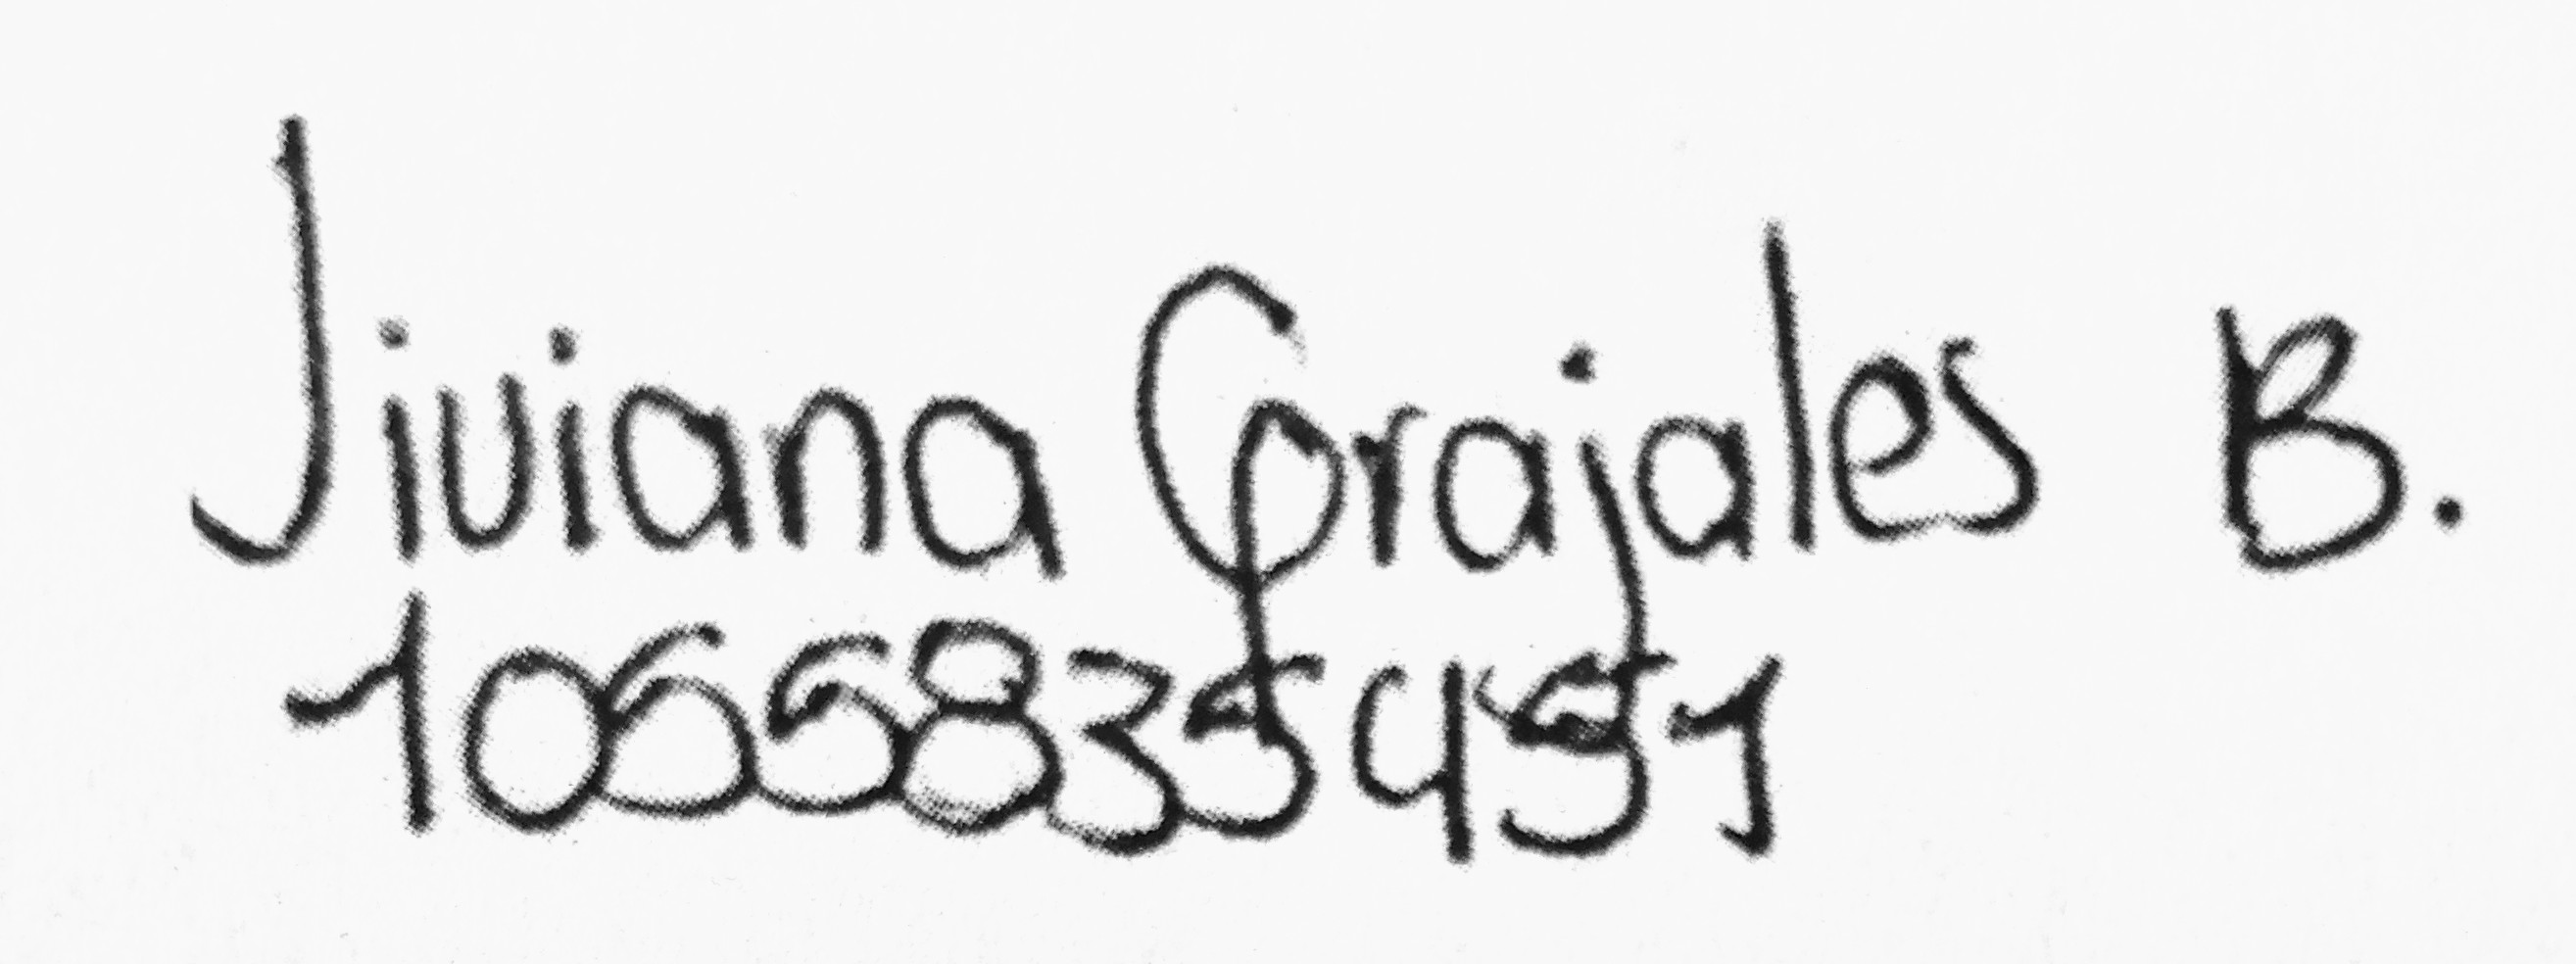 Jiviana Grajales B.
1066835451